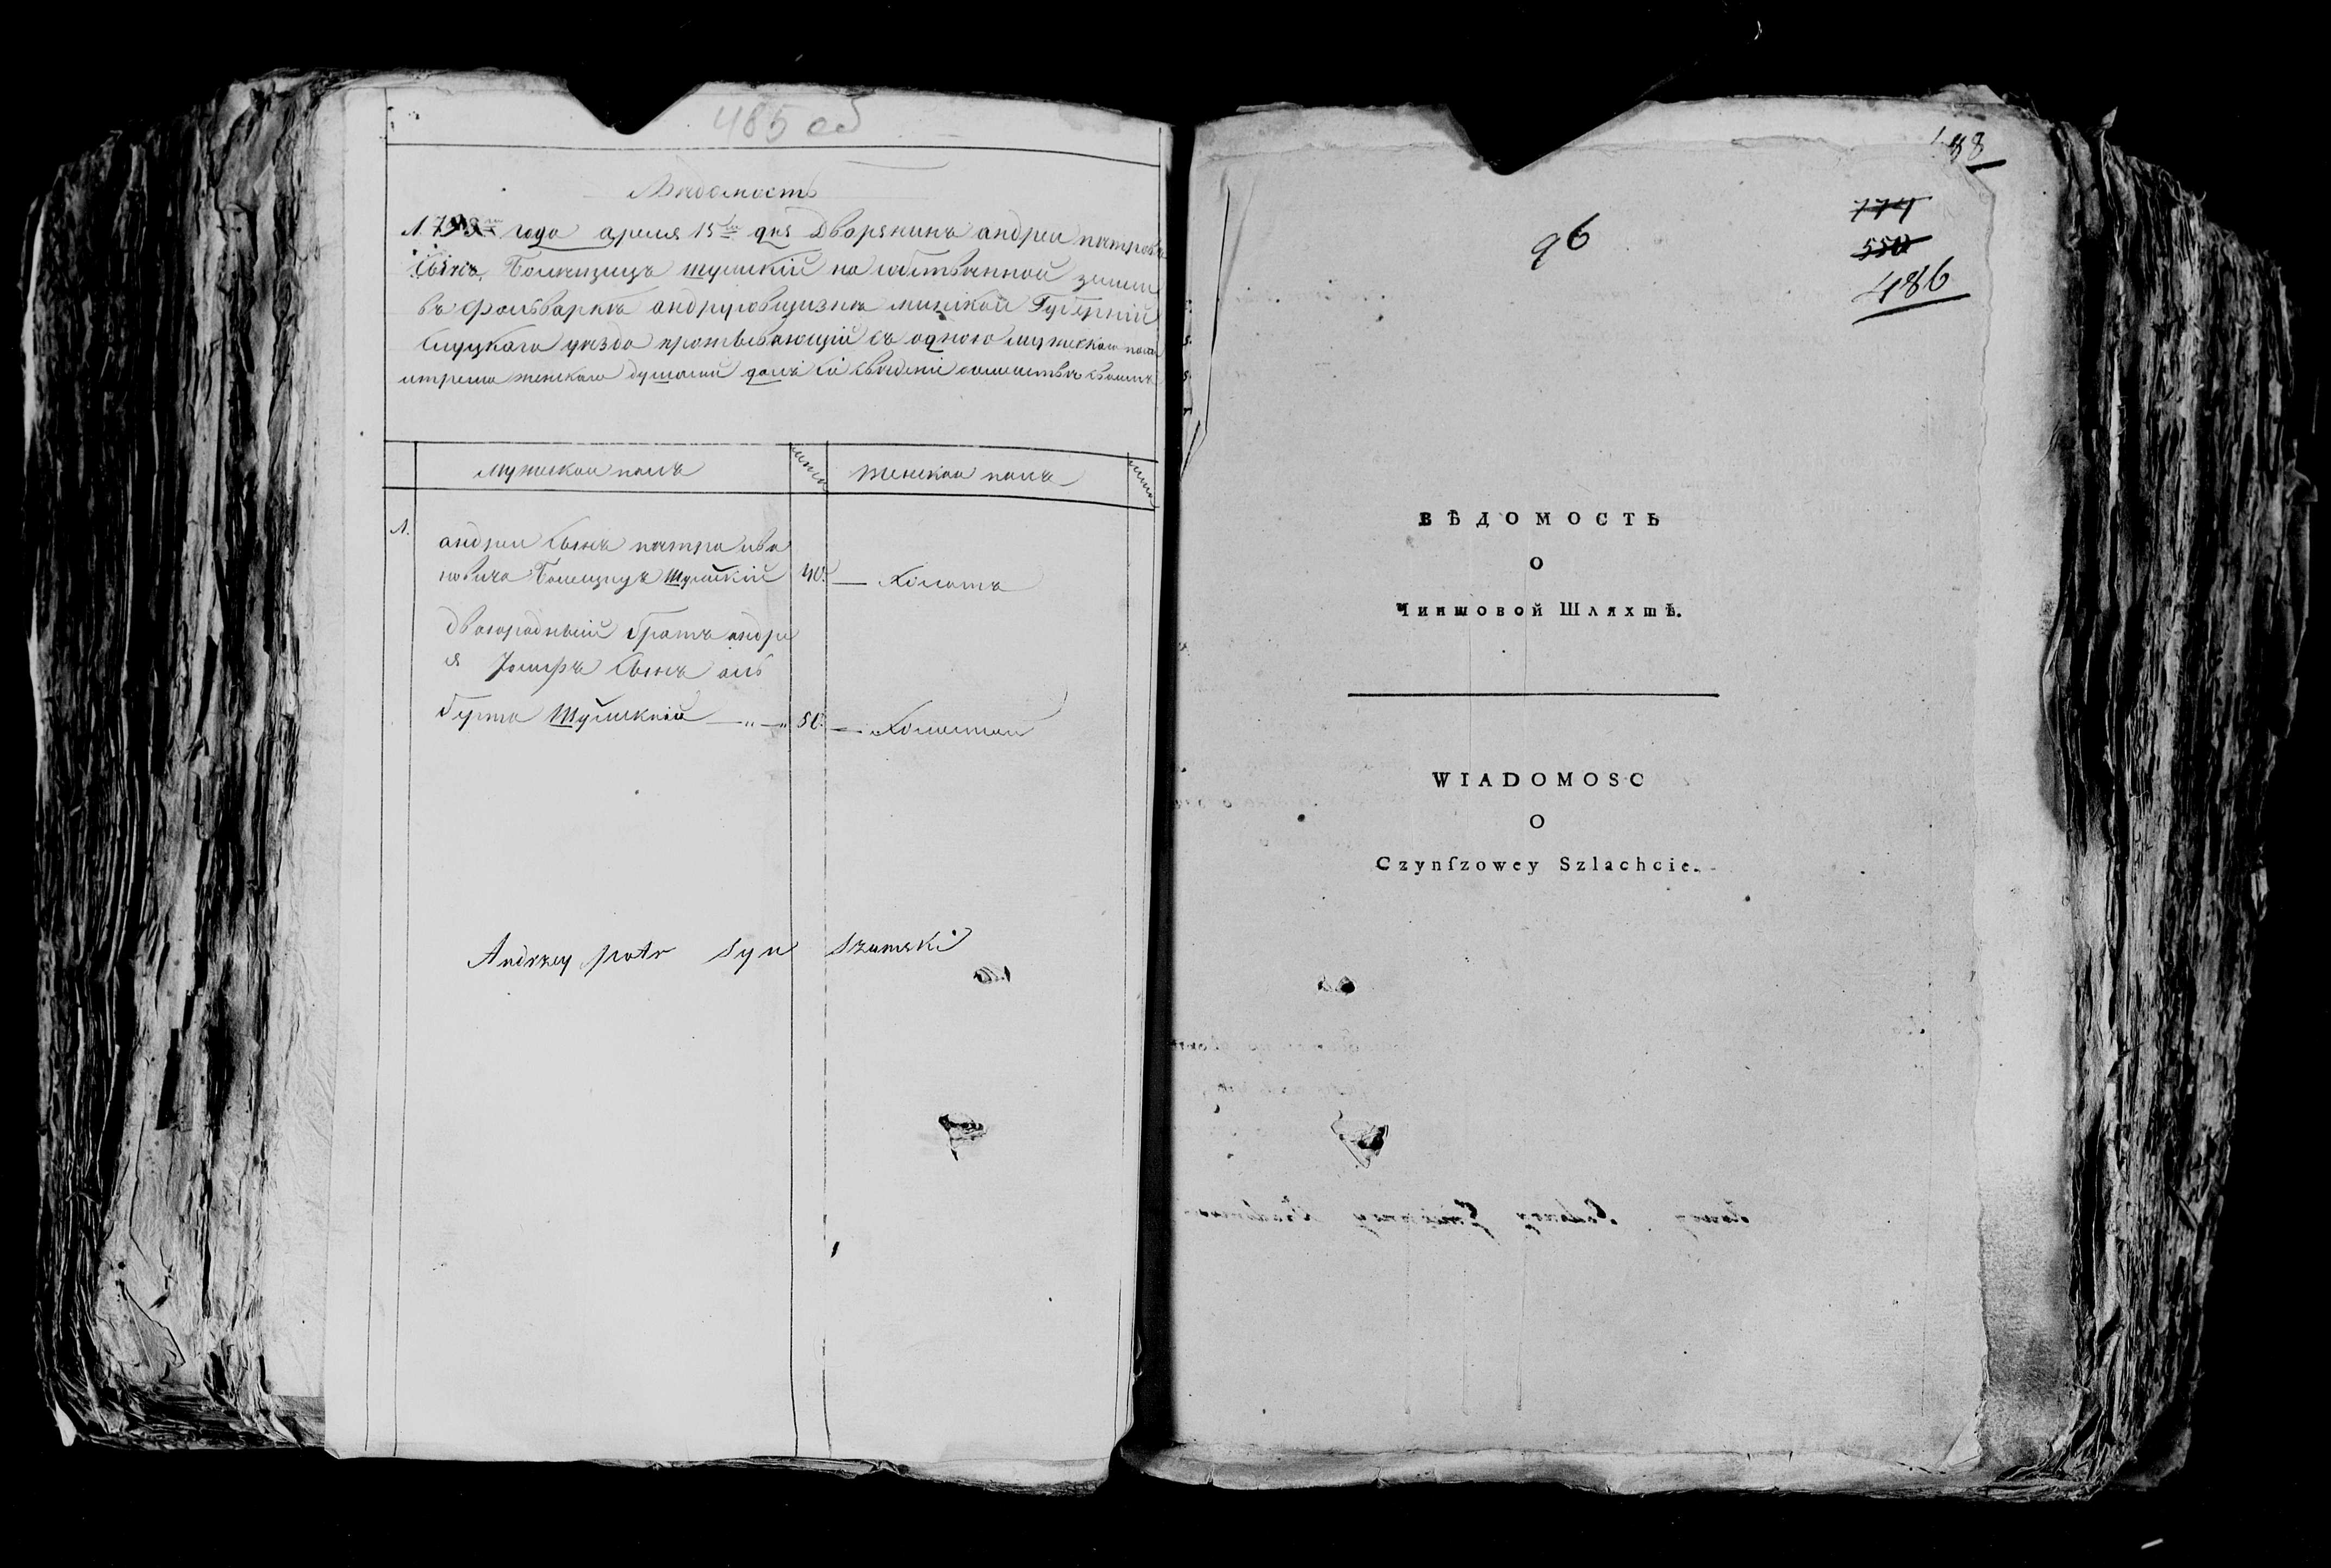 485 об
Ведомость
года апреля 15 дня Дворянинъ андреи петровъ
Сынъ шумскій на собственной земли
въ фольварке андруовщизне минской Губерніи
Слуцкаго уезда проживающій съ одною мужеска пола
итремя женскаго душами далъ сіе сведеніе
мужескои полъ
лета
женскои полъ
лета
1.
андреи Сынъ петра ива
новича шумскій 40.
— Холостъ
двоюродныій братъ андре
я Іосифъ Сынъ аль
берта шумскій — „ — „ 50.
— Холостои
Andrzey piotr Syn Szumski
188
96
774
550
486
ВѢДОМОСТЬ
О
Чиншовой Шляхтѣ.
WIADOMOSC
O
Czynſzowey Szlachcie.